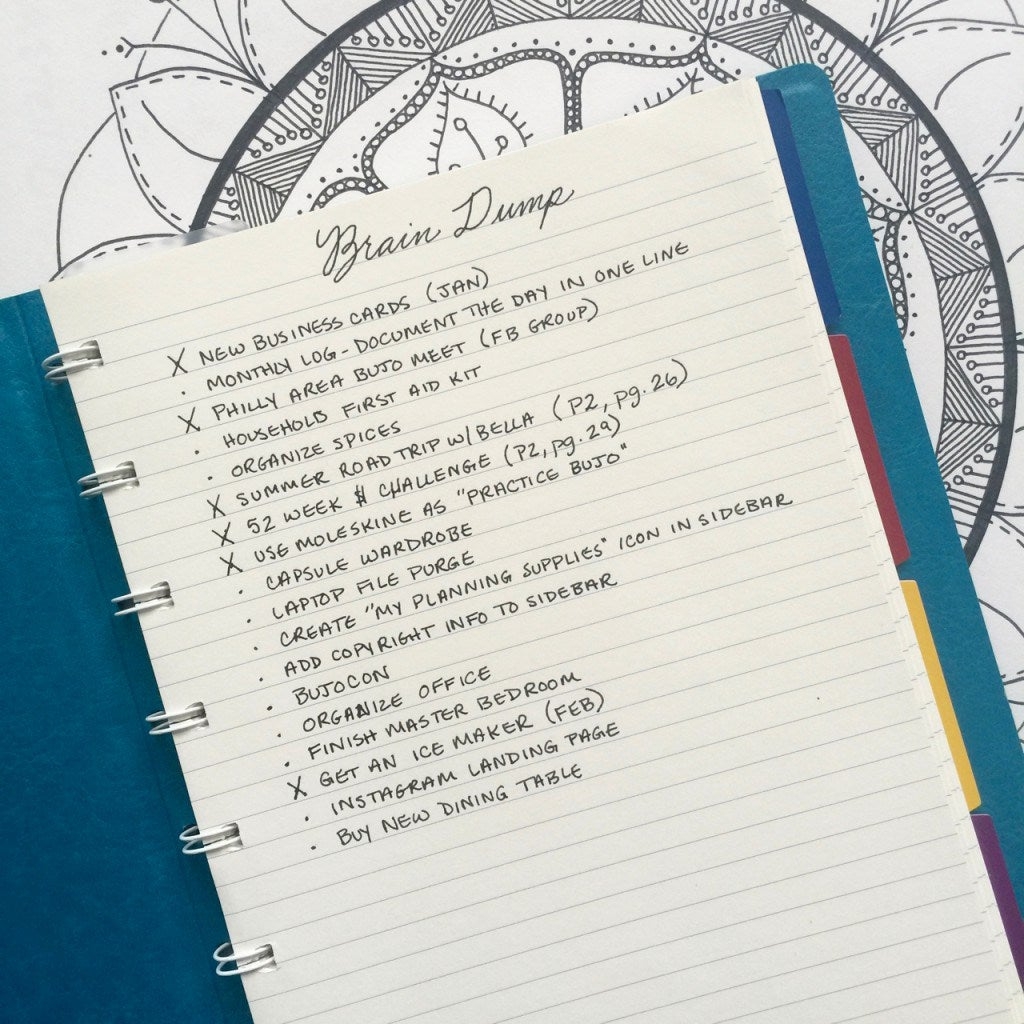 Brain Dump
X NEW BUSINESS CARDS (JAN)
· MONTHLY LOG - DOCUMENT THE DAY IN ONE LINE
X PHILLY AREA BUJO MEET (FB GROUP)
· HOUSEHOLD FIRST AID KIT
· ORGANIZE SPICES
X SUMMER ROAD TRIP W/BELLA (P2, pg. 26)
X 52 WEEK $ CHALLENGE (P2, pg. 29)
X USE MOLESKINE AS "PRACTICE BUJO"
· CAPSULE WARDROBE
· LAPTOP FILE PURGE
· CREATE "MY PLANNING SUPPLIES" ICON IN SIDEBAR
· ADD COPYRIGHT INFO TO SIDEBAR
· BUJOCON
· ORGANIZE OFFICE
· FINISH MASTER BEDROOM
X GET AN ICE MAKER (FEB)
· INSTAGRAM LANDING PAGE
· BUY NEW DINING TABLE